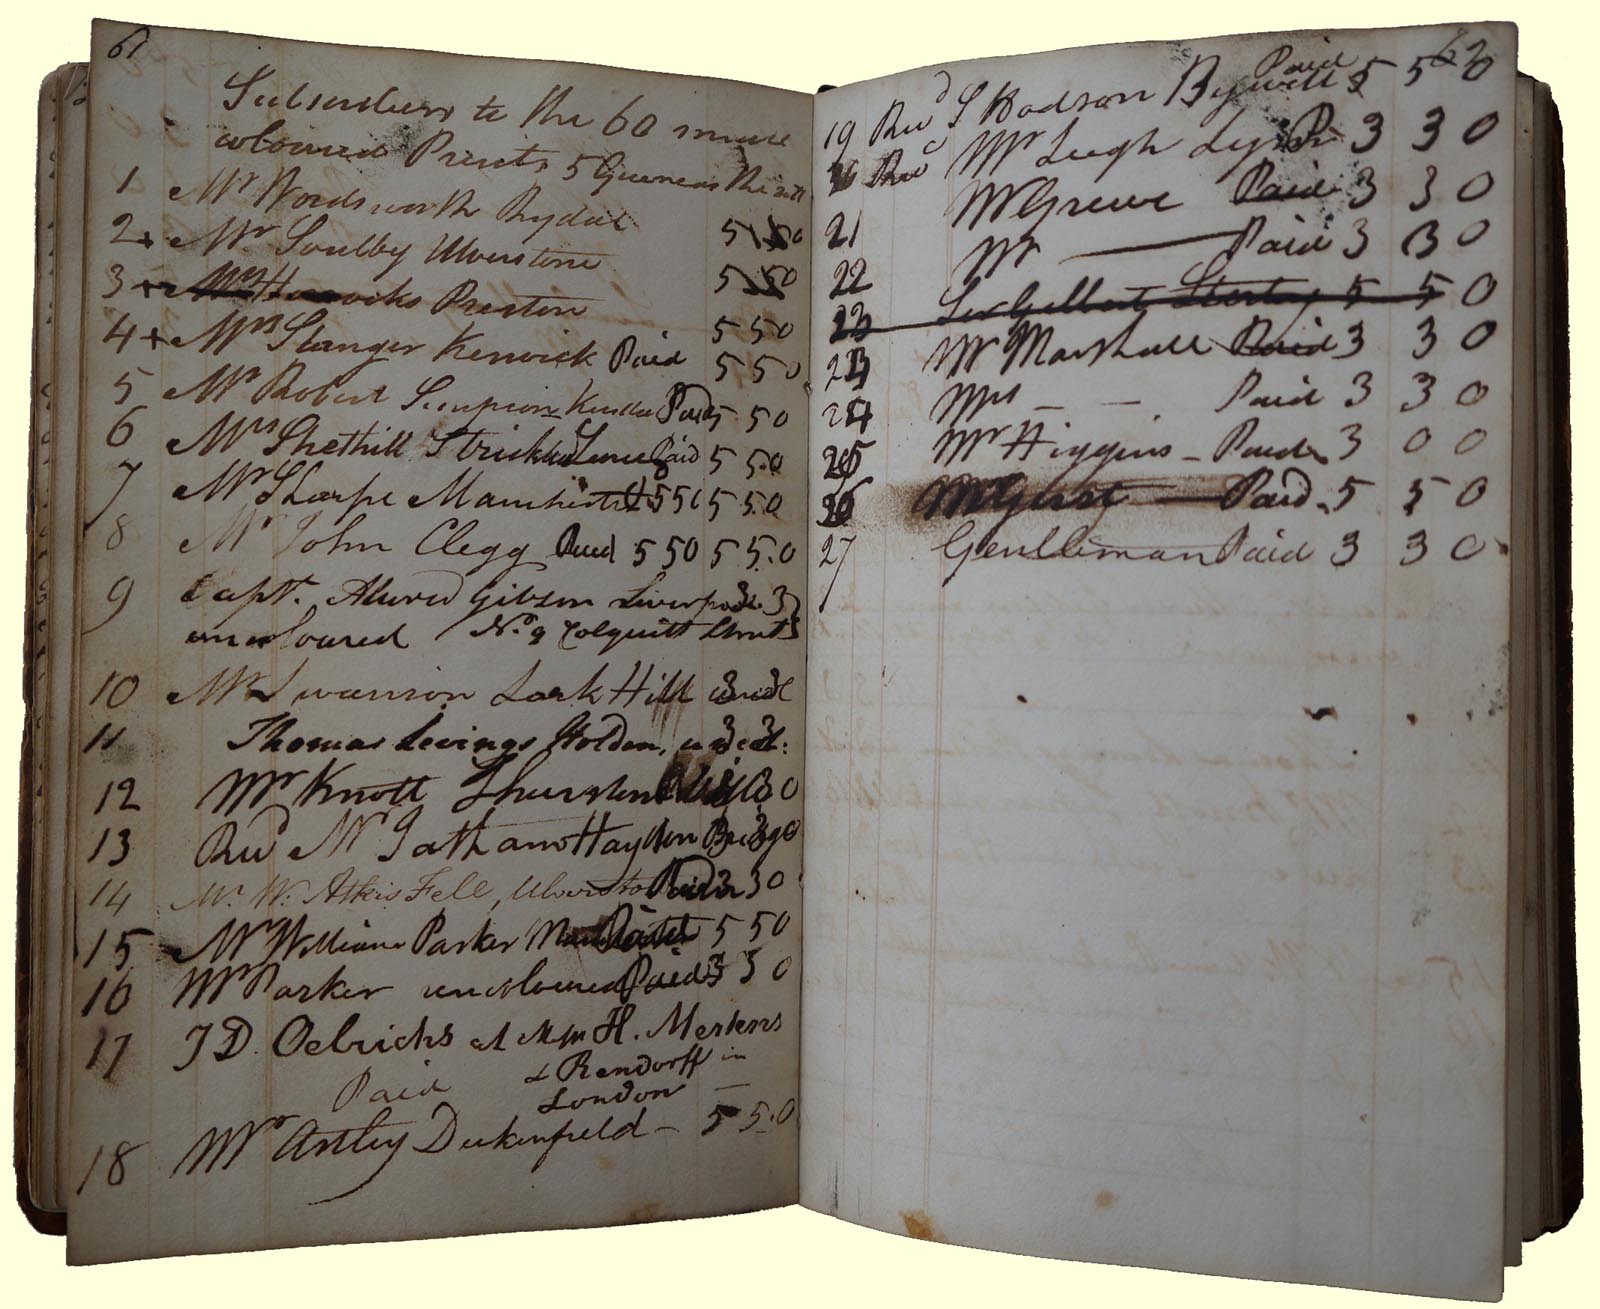 61
Subscribers to the 60 more
coloured Prints 5 Guineas the sett
1 Mr Wordsworth Rydal 5 5 0
2 + Mr Soulby Ulverstone 5 5 0
3 + Horrocks Preston 5 5 0
4 + Mrs Stanger Keswick Paid 5 5 0
5 Mr Robert Simpson Kendal Paid 5 5 0
6 Mrs Strickland Paid 5 5 0
7 Mr Sharpe Manchester 5 5 0 5 5 0
8 Mr John Clegg Paid 5 5 0 5 5 0
9 Capt. Alured Gibson Liverpool 3 3
uncoloured No. 9 Colquitt Street
10 Mr Swainson Lark Hill 3 3
11 Thomas Levings Holden, 3 3
12 Mr Knott 3 0
13 Revd Mr Tatham Haydon Bridge
14 Mr. W. Fell, Ulverston Paid 3 3 0
15 Mr William Parker Paid 5 5 0
16 Mr Parker uncoloured Paid 3 3 0
17 J D. Oelrichs at H. Mertens
& Rendorff in
Paid London
18 Mr Astley Duckenfield 5 5 0
62
Paid
19 Revd S Hodson Bywell 5 5 0
20 Revd Mr Leigh 3 3 0
Mr Greene Paid 3 3 0
21 Mr Paid 3 3 0
22
23 Sir Gilbert 5 5 0
23 Mr Marshall Paid 3 3 0
24 Mrs Paid 3 3 0
25 Mr Higgins Paid 3 0 0
26 Paid 5 5 0
27 Gentleman Paid 3 3 0